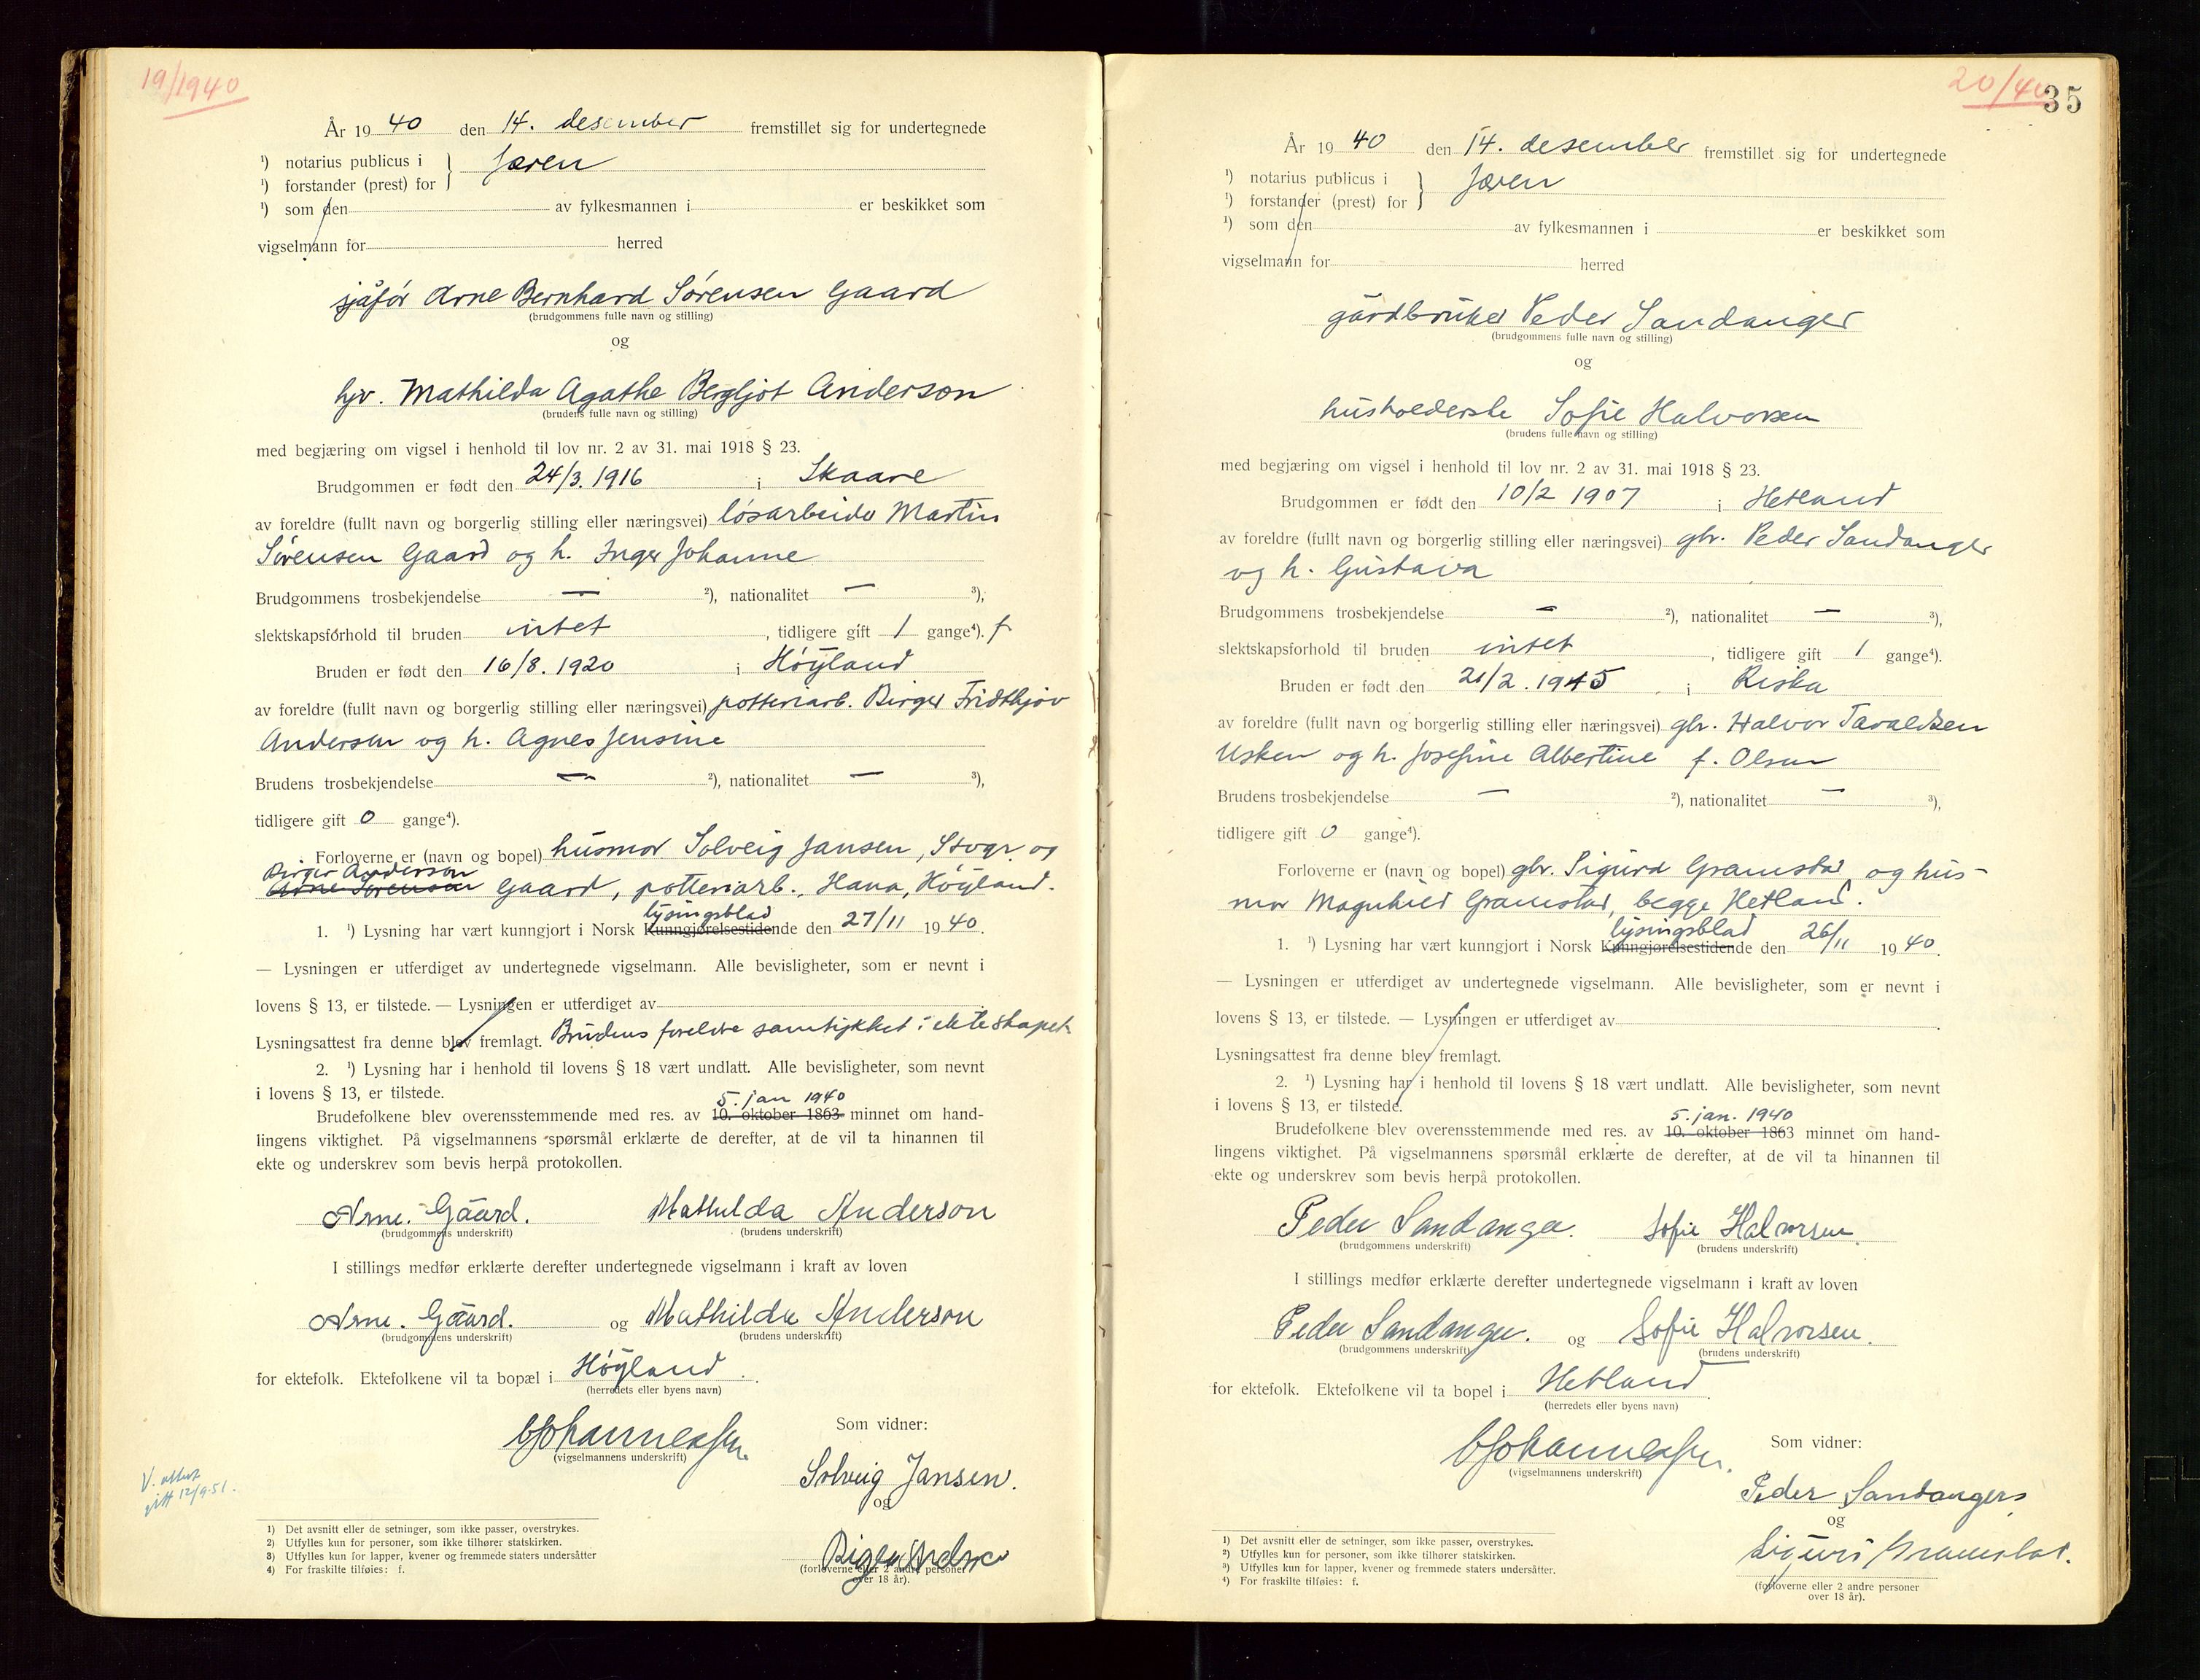 19/1940
År 1940 den 14. desember fremstillet sig for undertegnede
¹) notarius publicus i } Jæren
¹) forstander (prest) for
¹) som den av fylkesmannen i er beskikket som
vigselmann for herred
sjåfør Arne Bernhard Sørensen Gaard
(brudgommens fulle navn og stilling)
og
hjv. Mathilda Agathe Bergljot Anderson
(brudens fulle navn og stilling)
med begjæring om vigsel i henhold til lov nr. 2 av 31. mai 1918 § 23.
Brudgommen er født den 24/3. 1916 i Skaare
av foreldre (fullt navn og borgerlig stilling eller næringsvei) løsarbeider Martin
Sørensen Gaard og h. Inger Johanne
Brudgommens trosbekjendelse — ²), nationalitet — ³),
slektskapsforhold til bruden intet, tidligere gift 1 gange⁴). f
Bruden er født den 16/8. 1920 i Høyland
av foreldre (fullt navn og borgerlig stilling eller næringsvei) potteriarb. Birger Fridthjov
Andersen og h. Agnes Jensine
Brudens trosbekjendelse — ²), nationalitet — ³),
tidligere gift 0 gange⁴).
Forloverne er (navn og bopel) husmor Solveig Jansen, Stvgr. og
Birger Anderson
Arne Sørensen Gaard, potteriarb., Hana, Høyland.
lysingsblad
1. ¹) Lysning har vært kunngjort i Norsk Kunngjørelsestidende den 27/11 1940.
— Lysningen er utferdiget av undertegnede vigselmann. Alle bevisligheter, som er nevnt i
lovens § 13, er tilstede. — Lysningen er utferdiget av
Lysningsattest fra denne blev fremlagt. Brudens foreldre samtykket i ekteskapet.
2. ¹) Lysning har i henhold til lovens § 18 vært undlatt. Alle bevisligheter, som nevnt
i lovens § 13, er tilstede.
5. jan 1940
Brudefolkene blev overensstemmende med res. av 10. oktober 1863 minnet om hand-
lingens viktighet. På vigselmannens spørsmål erklærte de derefter, at de vil ta hinannen til
ekte og underskrev som bevis herpå protokollen.
Arne. Gaard. Mathilda Anderson
(brudgommens underskrift) (brudens underskrift)
I stillings medfør erklærte derefter undertegnede vigselmann i kraft av loven
Arne. Gaard. og Mathilda Anderson
(brudgommens underskrift) (brudens underskrift)
for ektefolk. Ektefolkene vil ta bopæl i Høyland.
(herredets eller byens navn)
Johannessen.
(vigselmannens underskrift)
Som vidner:
Solveig Jansen.
og
Birger
(forloverne eller 2 andre personer
over 18 år).
V. attest
gitt 12/9.51.
1) Det avsnitt eller de setninger, som ikke passer, overstrykes.
2) Utfylles kun for personer, som ikke tilhører statskirken.
3) Utfylles kun for lapper, kvener og fremmede staters undersåtter
4) For fraskilte tilføies: f.
20/40
35
År 1940 den 14. desember fremstillet sig for undertegnede
¹) notarius publicus i } Jæren
¹) forstander (prest) for
¹) som den av fylkesmannen i er beskikket som
vigselmann for herred
gårdbruker Peder Sandanger
(brudgommens fulle navn og stilling)
og
husholderske Sofie Halvorsen
(brudens fulle navn og stilling)
med begjæring om vigsel i henhold til lov nr. 2 av 31. mai 1918 § 23.
Brudgommen er født den 10/2 1907 i Hetland
av foreldre (fullt navn og borgerlig stilling eller næringsvei) gbr. Peder Sandanger
og h. Gustava
Brudgommens trosbekjendelse — ²), nationalitet — ³),
slektskapsforhold til bruden intet, tidligere gift 1 gange⁴).
Bruden er født den 21/2. 1915 i Riska
av foreldre (fullt navn og borgerlig stilling eller næringsvei) gbr. Halvor Tavaldsen
Usken og h. Josefine Albertine f. Olsen
Brudens trosbekjendelse — ²), nationalitet — ³),
tidligere gift 0 gange⁴).
Forloverne er (navn og bopel) gbr. Sigurd Gramstad og hus-
mor Magnhild Gramstad, begge Hetland.
lysingsblad
1. ¹) Lysning har vært kunngjort i Norsk Kunngjørelsestidende den 26/11 1940.
— Lysningen er utferdiget av undertegnede vigselmann. Alle bevisligheter, som er nevnt i
lovens § 13, er tilstede. — Lysningen er utferdiget av
Lysningsattest fra denne blev fremlagt.
2. ¹) Lysning har i henhold til lovens § 18 vært undlatt. Alle bevisligheter, som nevnt
i lovens § 13, er tilstede.
5. jan. 1940
Brudefolkene blev overensstemmende med res. av 10. oktober 1863 minnet om hand-
lingens viktighet. På vigselmannens spørsmål erklærte de derefter, at de vil ta hinannen til
ekte og underskrev som bevis herpå protokollen.
Peder Sandanger. Sofie Halvorsen.
(brudgommens underskrift) (brudens underskrift)
I stillings medfør erklærte derefter undertegnede vigselmann i kraft av loven
Peder Sandanger. og Sofie Halvorsen.
(brudgommens underskrift) (brudens underskrift)
for ektefolk. Ektefolkene vil ta bopel i Hetland.
(herredets eller byens navn)
Johannessen.
(vigselmannens underskrift)
Som vidner:
Peder Sandanger
og
Sigurd Gramstad.
(forloverne eller 2 andre personer
over 18 år).
1) Det avsnitt eller de setninger, som ikke passer, overstrykes.
2) Utfylles kun for personer, som ikke tilhører statskirken.
3) Utfylles kun for lapper, kvener og fremmede staters undersåtter.
4) For fraskilte tilføies: f.